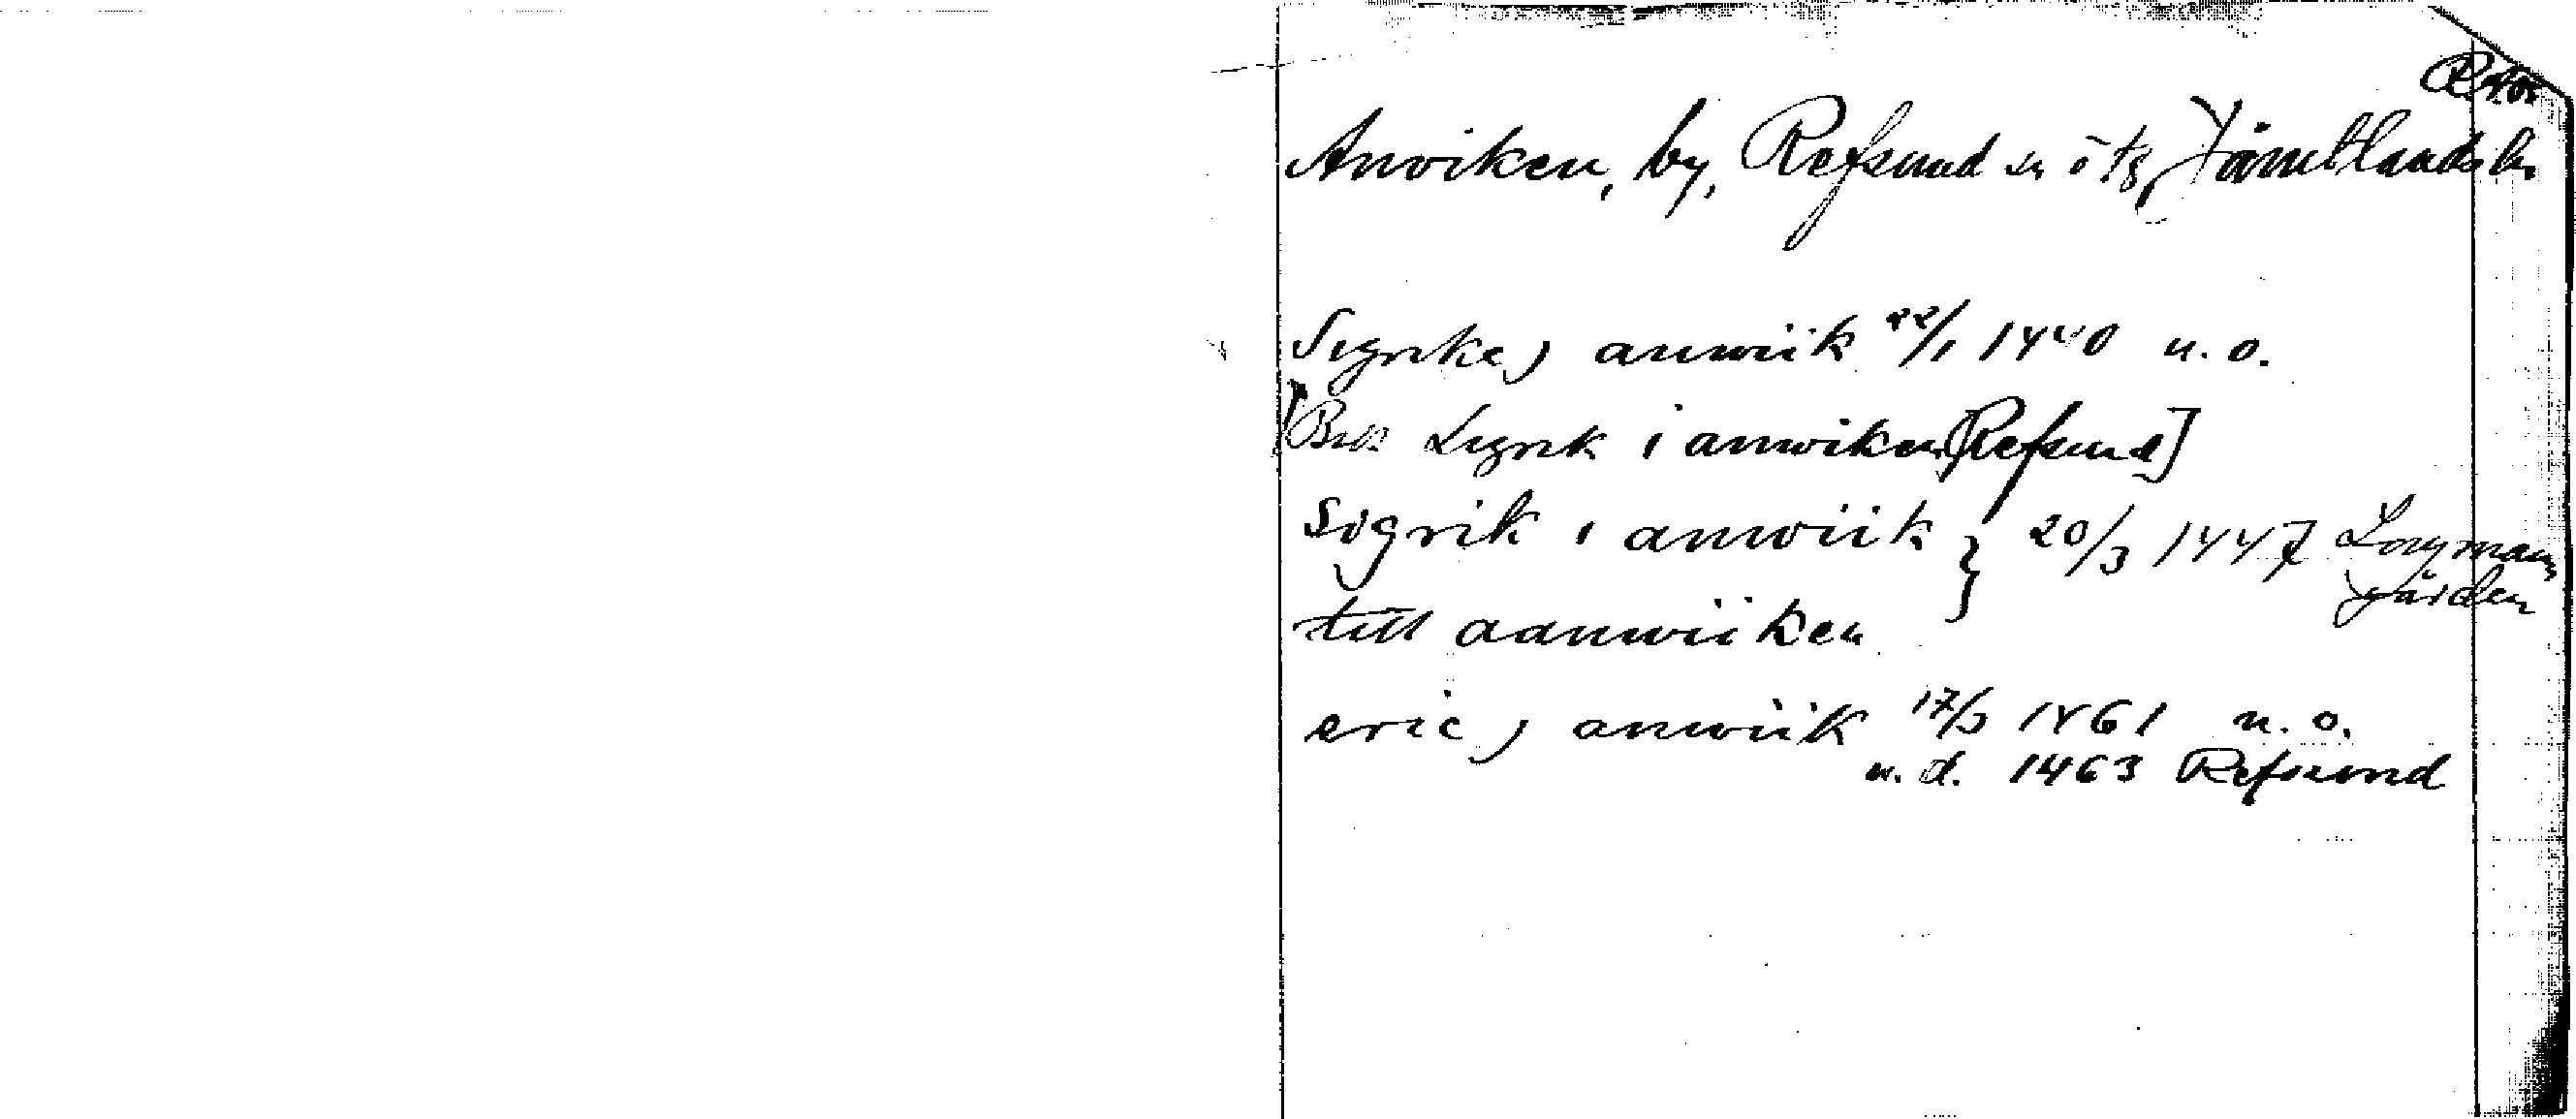 Anviken, by, Refsund sn ö tg, Jämtlands ln
Sigrike j anwiik 22/1 1440 u. o.
[Buss Sigrik i anwiken, Refsund]
Sigrik i anwiik } 20/3 1447 Lagmans
gården
till aanwiiken
eric j anwiik 17/3 1461 u. o.
u. d. 1463 Refsund